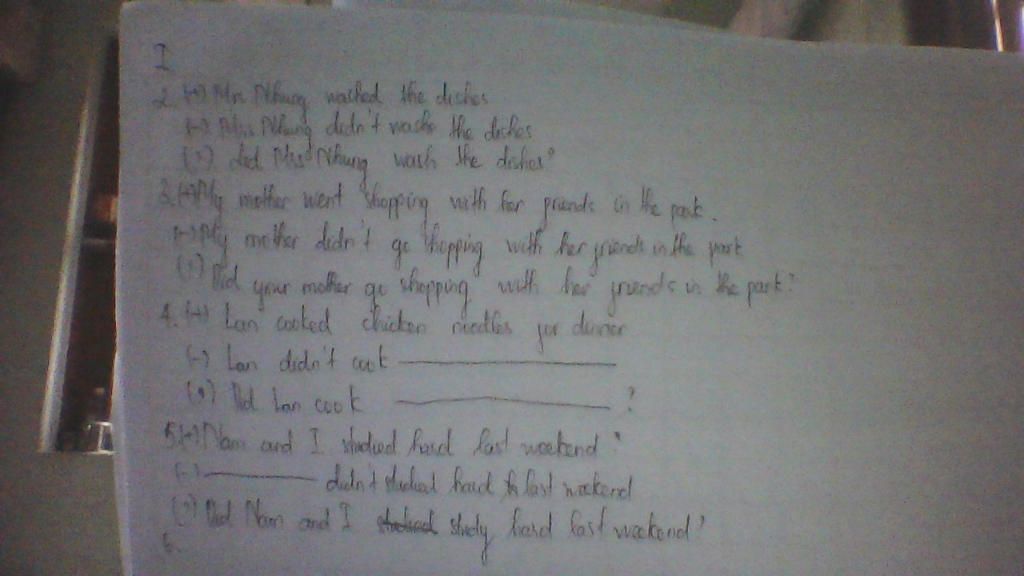 I
2. (+) Mrs Nhung washed the dishes
(-) Mrs Nhung didn't washs the dishes
(?) did Mrs Nhung wash the dishes?
3. (+) My mother went shopping with her friends in the park.
(-) My mother didn't go shopping with her friends in the park
(?) Did your mother go shopping with her friends in the park?
4. (+) Lan cooked chicken noodles for dinner
(-) Lan didn't cook
(?) Did Lan cook ?
5. (+) Nam and I studied hard last weekend
(-) didn't studied hard last weekend
(?) Did Nam and I studied study hard last weekend?
6.